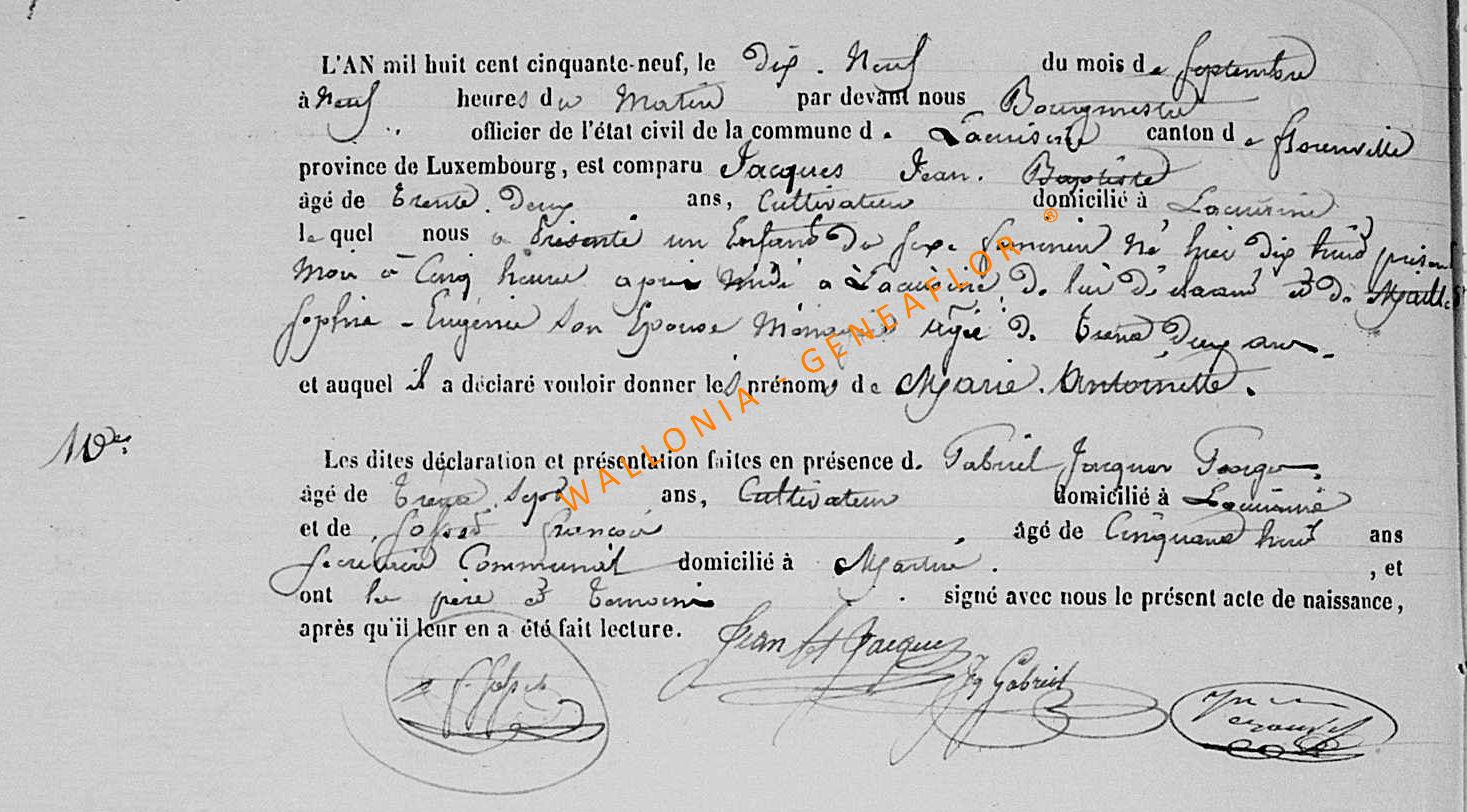 L'AN mil huit cent cinquante-neuf, le Dix. Neuf du mois de Septembre
à Neuf heures du Matin par devant nous Bourgmestre
officier de l'état civil de la commune d. Lacuisine canton de Florenville
province de Luxembourg, est comparu Jacques Jean. Baptiste
âgé de Trente. Deux ans, Cultivateur domicilié à Lacuisine
lequel nous a Présenté un Enfant Du Sexe feminin Né hier dix huit
Mois à Cinq heures après Midi à Lacuisine De lui Déclarant et De
Sophie - Eugénie Son Epouse Ménagère agée De Trente Deux ans
et auquel il a déclaré vouloir donner les prénoms de Marie. Antoinette.
10e.
Les dites déclaration et présentation faites en présence d. Gabriel Jacques
âgé de Trente Sept ans, Cultivateur domicilié à Lacuisine
et de François âgé de Cinquante huit ans
Secretaire Communal domicilié à Martué. , et
ont le père et temoins signé avec nous le présent acte de naissance,
après qu'il leur en a été fait lecture.
Jean Bt Jacques
Gabriel
WALLONIA - GENEAFLOR ®